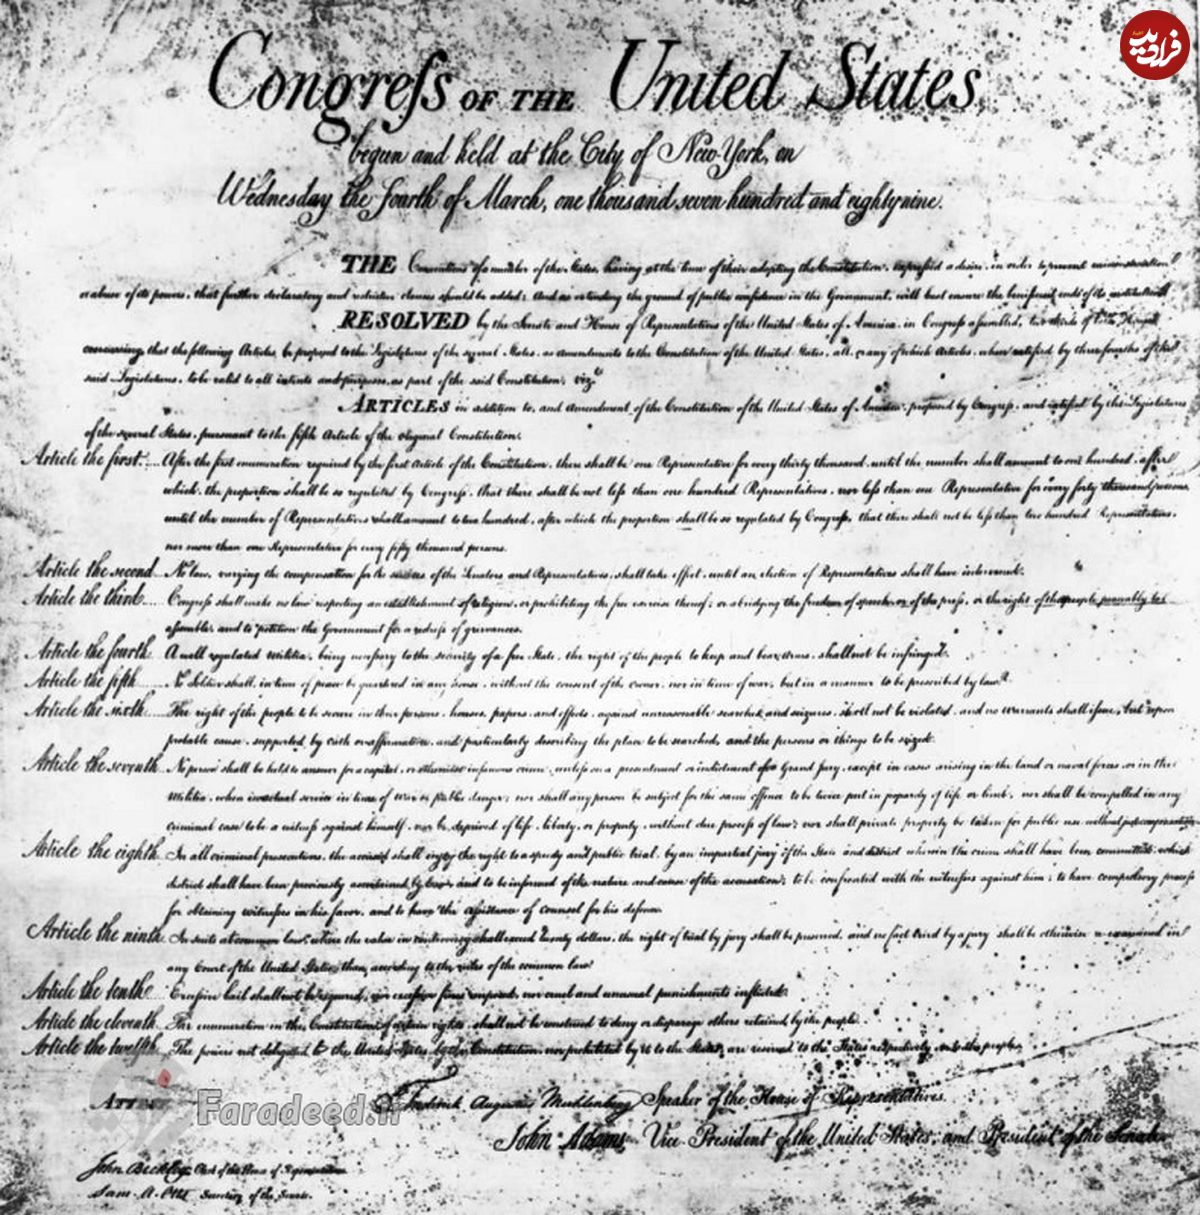 فرادید
Congreſs OF THE United States,
begun and held at the City of New-York, on
Wednesday the fourth of March, one thousand seven hundred and eighty nine.
THE Conventions of a number of the States, having at the time of their adopting the Constitution, expreſsed a desire, in order to prevent misconstruction
or abuse of its powers, that further declaratory and restrictive clauses should be added: And as extending the ground of public confidence in the Government, will best ensure the beneficent ends of its institution
RESOLVED by the Senate and House of Representatives of the United States of America, in Congreſs aſsembled, two thirds of both Houses
concurring, that the following Articles be proposed to the Legislatures of the several States, as amendments to the Constitution of the United States, all, or any of which Articles, when ratified by three fourths of the
said Legislatures, to be valid to all intents and purposes, as part of the said Constitution; viz.t
ARTICLES in addition to, and Amendment of the Constitution of the United States of America, proposed by Congreſs, and ratified by the Legislatures
of the several States, pursuant to the fifth Article of the original Constitution.
Article the first.... After the first enumeration required by the first Article of the Constitution, there shall be one Representative for every thirty thousand, until the number shall amount to one hundred, after
which, the proportion shall be so regulated by Congreſs, that there shall be not leſs than one hundred Representatives, nor leſs than one Representative for every forty thousand persons,
until the number of Representatives shall amount to two hundred, after which the proportion shall be so regulated by Congreſs, that there shall not be leſs than two hundred Representatives,
nor more than one Representative for every fifty thousand persons.
Article the second... No law, varying the compensation for the services of the Senators and Representatives, shall take effect, until an election of Representatives shall have intervened.
Article the third.... Congreſs shall make no law respecting an establishment of religion, or prohibiting the free exercise thereof; or abridging the freedom of speech, or of the preſs, or the right of the people peaceably to
aſsemble, and to petition the Government for a redreſs of grievances.
Article the fourth.. A well regulated Militia, being neceſsary to the security of a free State, the right of the people to keep and bear Arms, shall not be infringed.
Article the fifth..... No Soldier shall, in time of peace be quartered in any house, without the consent of the owner, nor in time of war, but in a manner to be prescribed by law.
Article the sixth..... The right of the people to be secure in their persons, houses, papers, and effects, against unreasonable searches and seizures, shall not be violated, and no warrants shall iſsue, but upon
probable cause, supported by oath or affirmation, and particularly describing the place to be searched, and the persons or things to be seized.
Article the seventh.. No person shall be held to answer for a capital, or otherwise infamous crime, unleſs on a presentment or indictment of a Grand Jury, except in cases arising in the land or naval forces, or in the
Militia, when in actual service in time of War or public danger; nor shall any person be subject for the same offence to be twice put in jeopardy of life or limb, nor shall be compelled in any
criminal case to be a witneſs against himself, nor be deprived of life, liberty, or property, without due proceſs of law; nor shall private property be taken for public use without just compensation.
Article the eighth.. In all criminal prosecutions, the accused shall enjoy the right to a speedy and public trial, by an impartial jury of the State and district wherein the crime shall have been committed, which
district shall have been previously ascertained by law, and to be informed of the nature and cause of the accusation; to be confronted with the witneſses against him; to have compulsory proceſs
for obtaining witneſses in his favor, and to have the aſsistance of counsel for his defence.
Article the ninth.. In suits at common law, where the value in controversy shall exceed twenty dollars, the right of trial by jury shall be preserved, and no fact tried by a jury shall be otherwise re-examined in
any Court of the United States, than according to the rules of the common law.
Article the tenth.. Exceſsive bail shall not be required, nor exceſsive fines imposed, nor cruel and unusual punishments inflicted.
Article the eleventh. The enumeration in the Constitution, of certain rights, shall not be construed to deny or disparage others retained by the people.
Article the twelfth.. The powers not delegated to the United States by the Constitution, nor prohibited by it to the States, are reserved to the States respectively, or to the people.
ATTEST
Faradeed.ir
Frederick Augustus Muhlenberg Speaker of the House of Representatives.
John Adams Vice President of the United States, and President of the Senate
John Beckley, Clerk of the House of Representatives
Sam. A. Otis Secretary of the Senate.